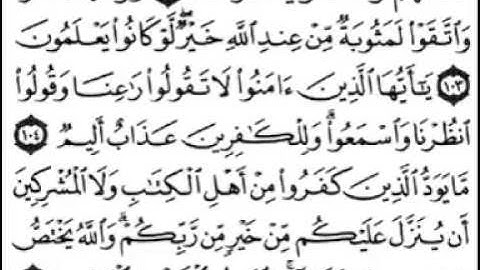 وَٱتَّقَوْا۟ لَمَثُوبَةٌ مِّنْ عِندِ ٱللَّهِ خَيْرٌ ۖ لَّوْ كَانُوا۟ يَعْلَمُونَ
﴿١٠٣﴾ يَـٰٓأَيُّهَا ٱلَّذِينَ ءَامَنُوا۟ لَا تَقُولُوا۟ رَٰعِنَا وَقُولُوا۟
ٱنظُرْنَا وَٱسْمَعُوا۟ ۗ وَلِلْكَـٰفِرِينَ عَذَابٌ أَلِيمٌ ﴿١٠٤﴾
مَّا يَوَدُّ ٱلَّذِينَ كَفَرُوا۟ مِنْ أَهْلِ ٱلْكِتَـٰبِ وَلَا ٱلْمُشْرِكِينَ
أَن يُنَزَّلَ عَلَيْكُم مِّنْ خَيْرٍ مِّن رَّبِّكُمْ ۗ وَٱللَّهُ يَخْتَصُّ